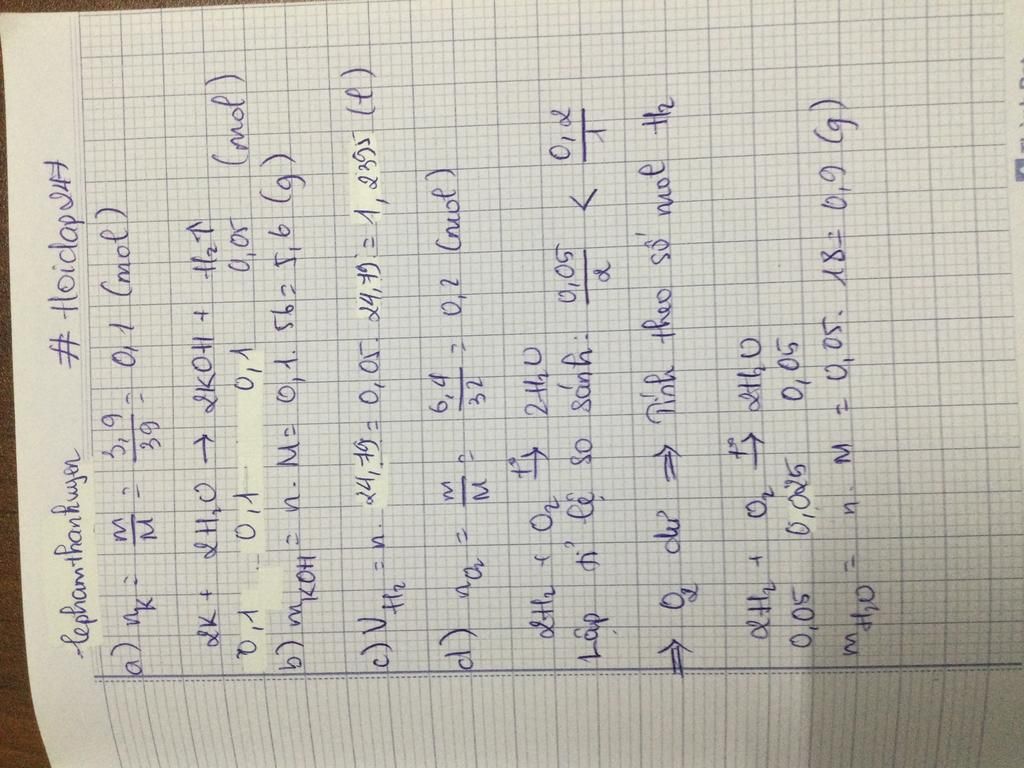 lephamthanhuyen # Hoidap247
a) nK = m/M = 3,9/39 = 0,1 (mol)
2K + 2H2O → 2KOH + H2↑
0,1 0,1 0,1 0,05 (mol)
b) mKOH = n. M = 0,1. 56 = 5,6 (g)
c) VH2 = n. 24,79 = 0,05. 24,79 = 1,2395 (l)
d) nO2 = m/M = 6,4/32 = 0,2 (mol)
2H2 + O2 t°→ 2H2O
Lập tỉ lệ so sánh: 0,05/2 < 0,2/1
⇒ O2 dư ⇒ Tính theo số mol H2
2H2 + O2 t°→ 2H2O
0,05 0,025 0,05
mH2O = n. M = 0,05. 18 = 0,9 (g)